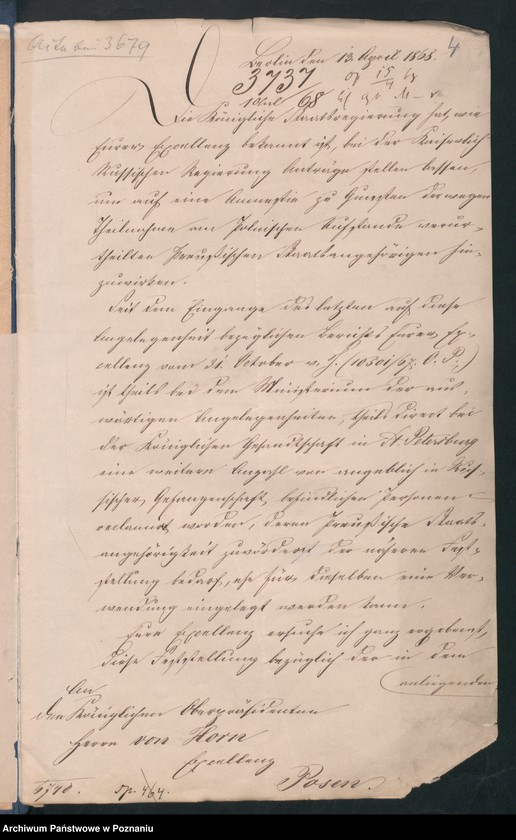 Acta bei 3679
4
Berlin den 13. April 1868.
3737
Die Königliche Staatsregierung hat, wie
Eurer Excellenz bekannt ist, bei der Kaiserlich
Russischen Regierung Anträge stellen lassen,
um auf eine Amnestie zu Gunsten der wegen
Theilnahme am Polnischen Aufstande verur-
theilten Preußischen Staatsangehörigen hin-
zuwirken.
Seit dem Eingange des letzten auf diese
Angelegenheit bezüglichen Berichts Eurer Ex-
cellenz vom 31. October v. J. (10301/67. O. P.)
ist theils bei dem Ministerium der aus-
wärtigen Angelegenheiten, theils direct bei
der Königlichen Gesandtschaft in St Petersburg
eine weitere Anzahl von angeblich in Rus-
sischer Gefangenschaft befindlichen Personen
reclamirt worden, deren Preußische Staats-
angehörigkeit zuvörderst der näheren Fest-
stellung bedarf, ehe für dieselben eine Ver-
wendung eingelegt werden kann.
Eure Excellenz ersuche ich ganz ergebenst,
diese Feststellung bezüglich der in dem
anliegenden
An
den Königlichen Oberpräsidenten
Herrn von Horn
Excellenz
Posen.
Archiwum Państwowe w Poznaniu